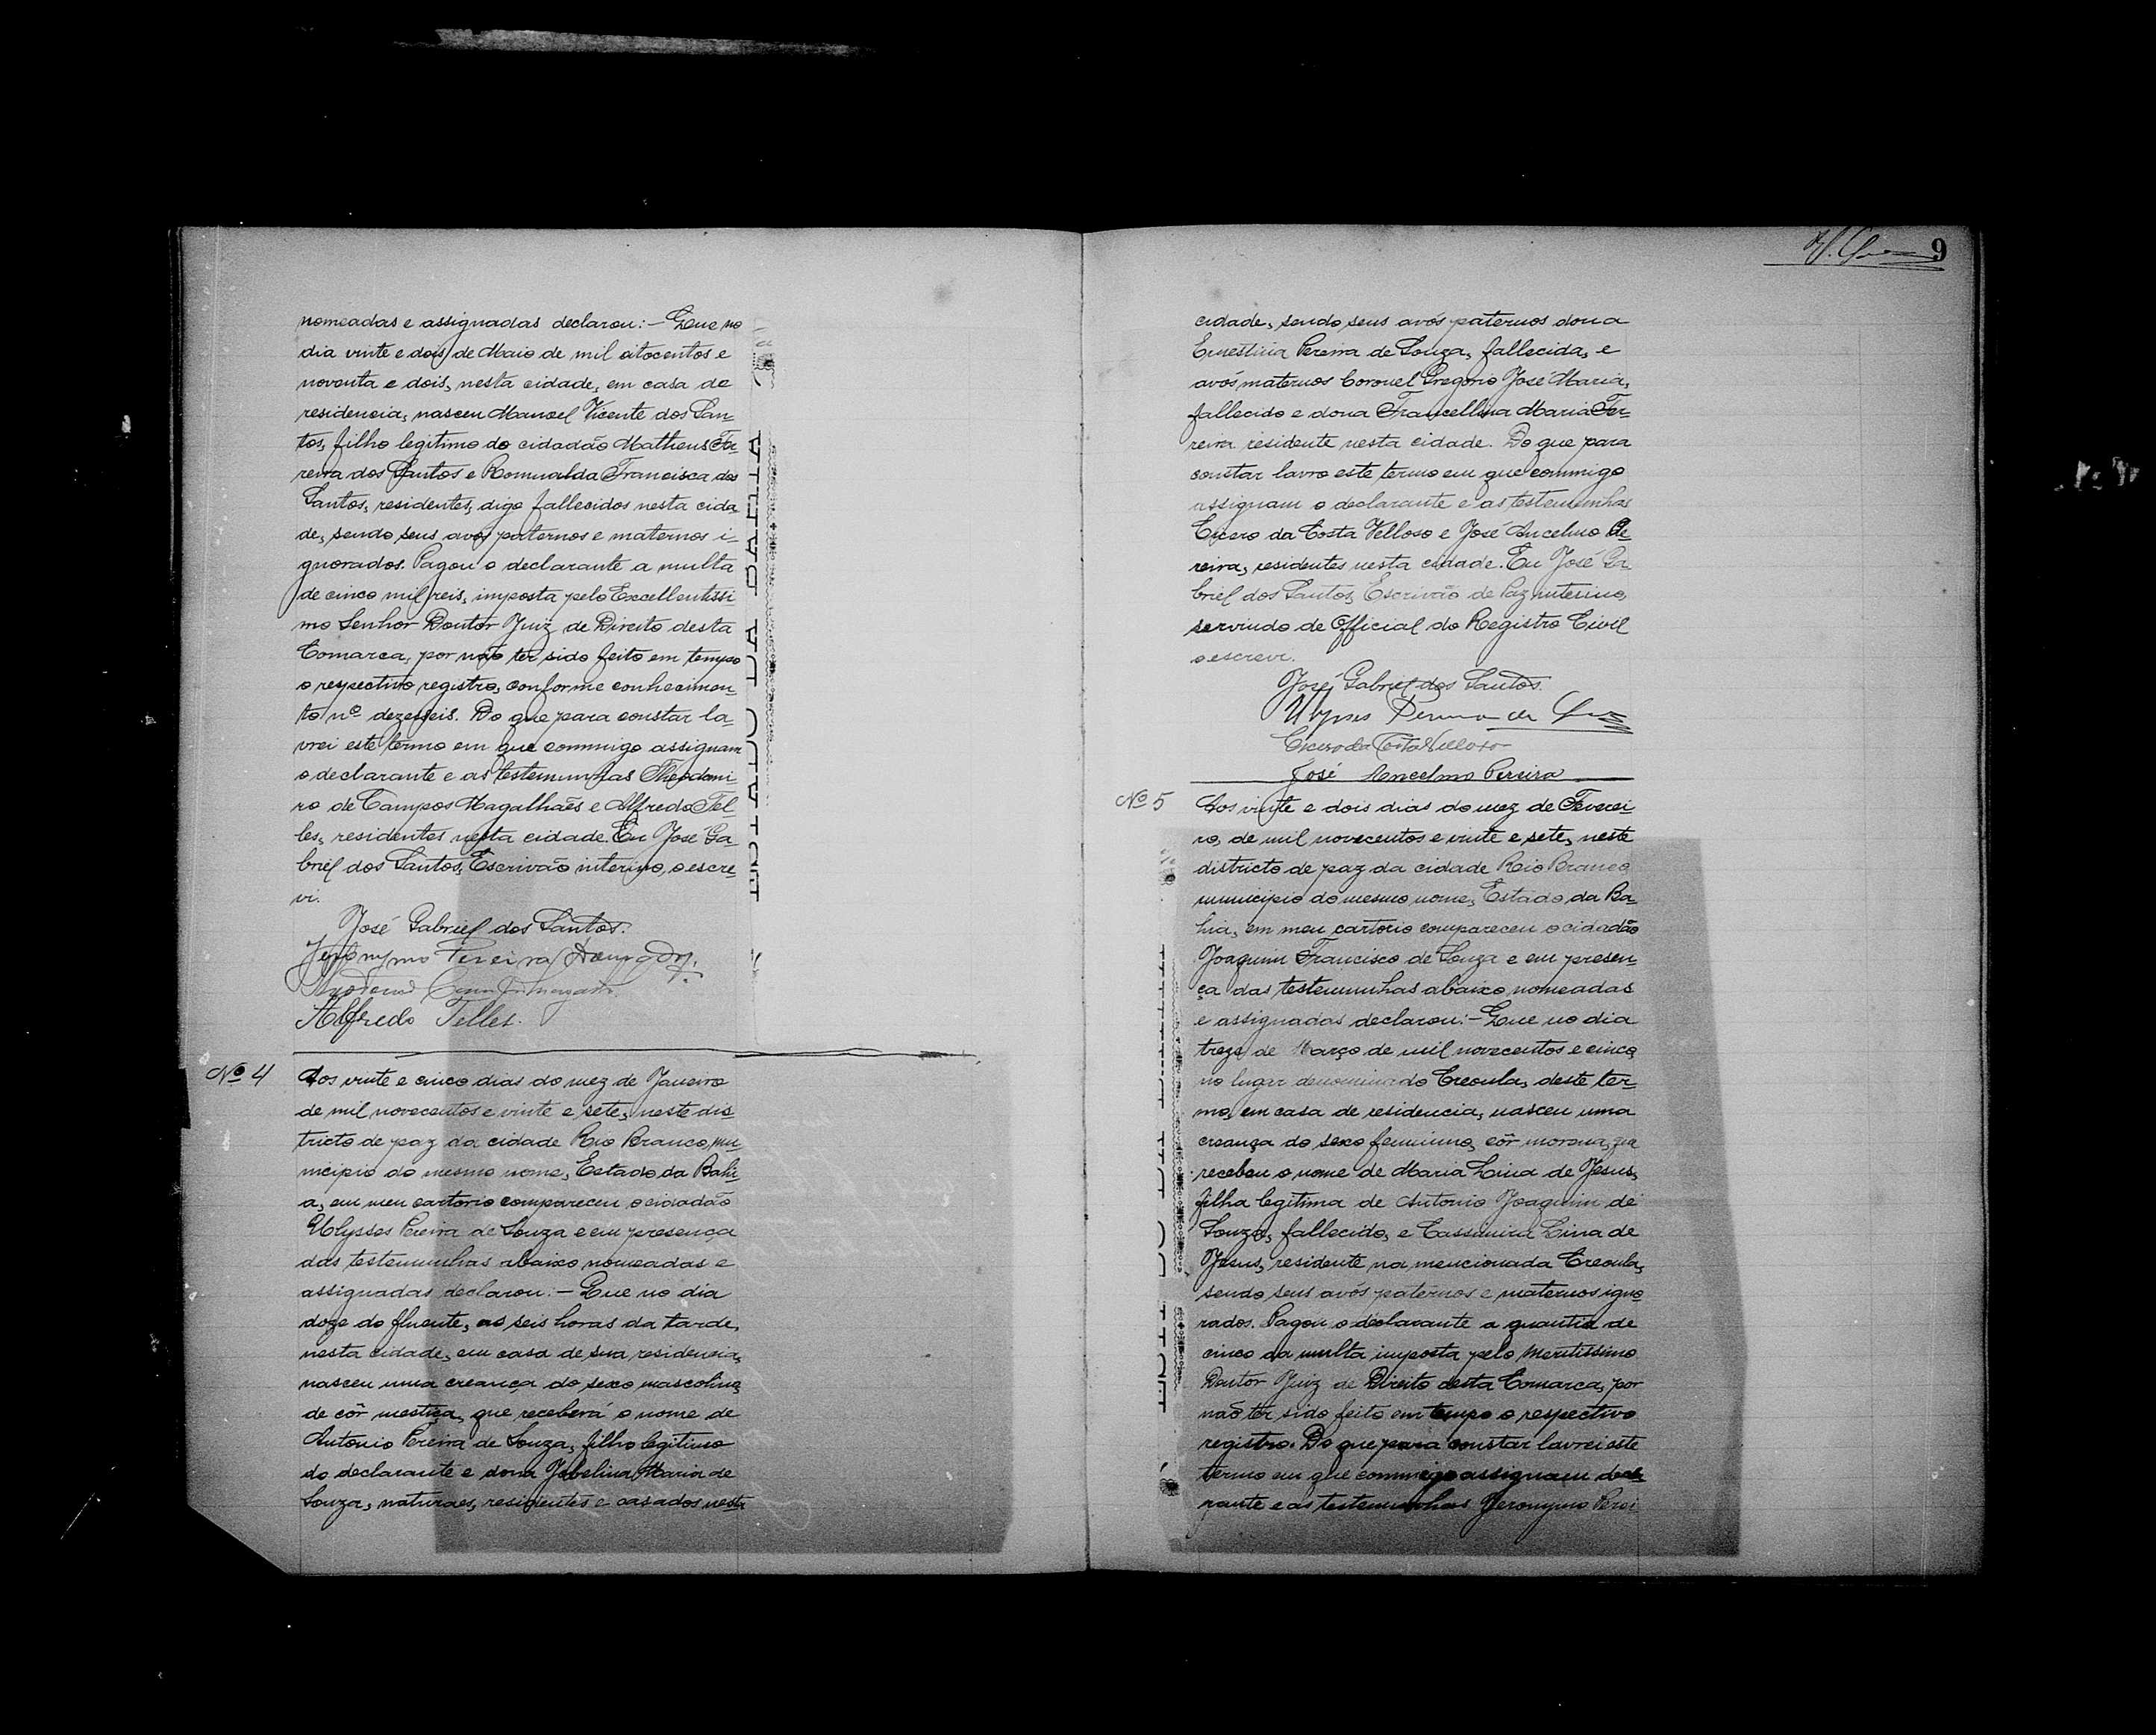 nomeadas e assignadas declarou:— Que no
dia vinte e dois de Maio de mil oitocentos e
noventa e dois, nesta cidade, em casa de
residencia, nasceu Manoel Vicente dos San-
tos, filho legitimo do cidadão Matheus Fer-
reira dos Santos e Romualda Francisca dos
Santos, residentes, digo fallecidos nesta cida
de, sendo seus avós paternos e maternos i-
gnorados. Pagou o declarante a multa
de cinco mil reis, imposta pelo Excellentissi-
mo Senhor Doutor Juiz de Direito desta
Comarca, por não ter sido feito em tempo
o respectivo registro, conforme conhecimen-
to nº dezesseis. Do que para constar la-
vrei este termo em que commigo assignam
o declarante e as testemunhas Theodomi
ro de Campos Magalhães e Alfredo Tel-
les, residentes nesta cidade. Eu José Ga-
briel dos Santos, Escrivão interino, o escre-
vi.
José Gabriel dos Santos.
Jeronymo Pereira
Alfredo Telles.
Nº 4
Aos vinte e cinco dias do mez de Janeiro
de mil novecentos e vinte e sete, neste dis
tricto de paz da cidade Rio Branco, mu
nicipio do mesmo nome, Estado da Bahi-
a, em meu cartorio compareceu o cidadão
Ulysses Pereira de Souza e em presença
das testemunhas abaixo nomeadas e
assignadas declarou:— Que no dia
doze do fluente, as seis horas da tarde,
nesta cidade, em casa de sua residencia,
nasceu uma creança do sexo mascolino,
de côr mestiça, que receberá o nome de
Antonio Pereira de Souza, filho legitimo
do declarante e dona Jobelina Maria de
Souza, naturaes, residentes e casados nesta
9
cidade, sendo seus avós paternos dona
Ernestina Pereira de Souza, fallecida, e
avós maternos Coronel Gregorio José Maria,
fallecido e dona Francellina Maria Fer-
reira residente nesta cidade. Do que para
constar lavro este termo em que commigo
assignam o declarante e as testemunhas
Cicero da Costa Velloso e José Ancelmo Pe-
reira, residentes nesta cidade. Eu José Ga
briel dos Santos, Escrivão de Paz interino,
servindo de Official do Registro Civil
o escrevi.
José Gabriel dos Santos.
Ulysses Pereira de Souza
Cicero da Costa Velloso
José Ancelmo Pereira
Nº 5
Aos vinte e dois dias do mez de Feverei-
ro, de mil novecentos e vinte e sete, neste
districto de paz da cidade Rio Branco
municipio do mesmo nome, Estado da Ba-
hia, em meu cartorio compareceu o cidadão
Joaquim Francisco de Souza e em presen-
ça das testemunhas abaixo nomeadas
e assignadas declarou:— Que no dia
treze de Março de mil novecentos e cinco
no lugar denominado Creoula, deste ter-
mo, em casa de residencia, nasceu uma
creança do sexo feminino, côr morena, que
recebeu o nome de Maria Lina de Jesus,
filha legitima de Antonio Joaquim de
Souza, fallecido, e Cassimira Lina de
Jesus, residente na mencionada Creoula,
sendo seus avós paternos e maternos igno
rados. Pagou o declarante a quantia de
cinco da multa imposta pelo Meritissimo
Doutor Juiz de Direito desta Comarca, por
não ter sido feito em tempo o respectivo
registro. Do que para constar lavrei este
termo em que commigo assignam decla
rante e as testemunhas Jeronymo Perei